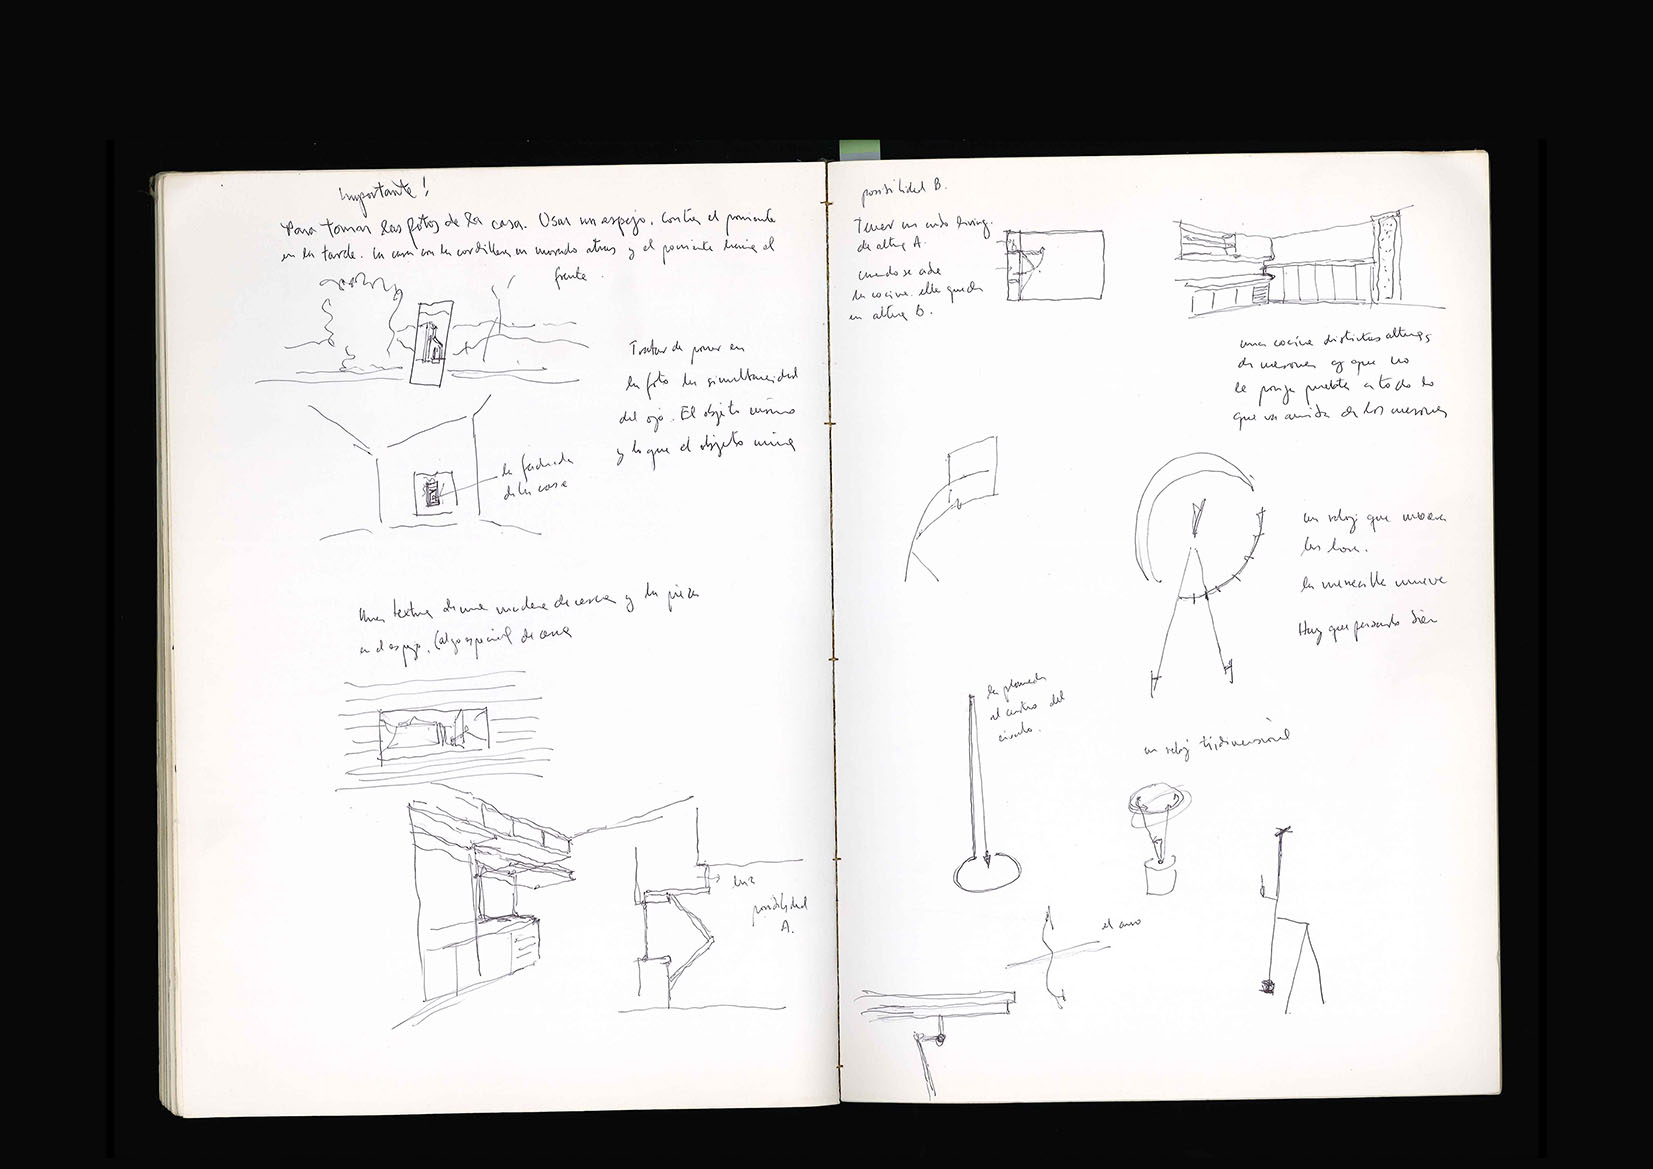 Importante!
Para tomar las fotos de la casa. Usar un espejo. Contra el poniente
en la tarde. La casa con la cordillera en morado atras y el poniente hacia el
frente.
Tratar de poner en
la foto la simultaneidad
del ojo. El objeto mismo
y lo que el objeto mira
la fachada
de la casa
Una textura de una madera de cerca y la pieza
en el espejo. (algo especial de cerca
luz
posibilidad
A.
posibilidad B.
Tener un living.
de altura A.
cuando se abre
la cocina. ella queda
en altura B.
una cocina distintas alturas
de mesones y que no
le ponga puerta a todo lo
que va de los mesones
un reloj que mueva
las horas.
la manecilla mueve
Hay que pensarlo bien
la plomada
el centro del
circulo.
un reloj tridimensional
el arco